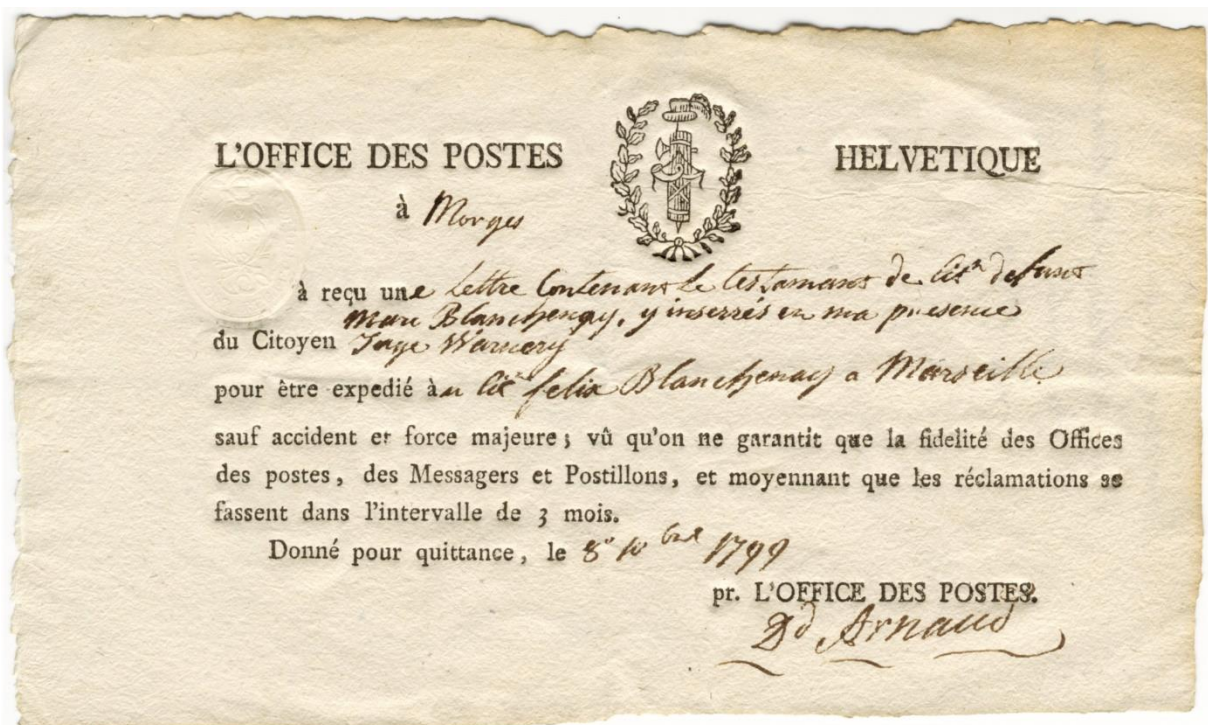 L'OFFICE DES POSTES HELVETIQUE
à Morges
à reçu une Lettre Contenant Le testamant de Citn defunt
Marc Blanchenay, y inserrés en ma presence
du Citoyen Juge Warnery
pour être expedié àu Citn felix Blanchenay a Marseille
sauf accident et force majeure; vû qu'on ne garantit que la fidelité des Offices
des postes, des Messagers et Postillons, et moyennant que les réclamations se
fassent dans l'intervalle de 3 mois.
Donné pour quittance, le 8e 10bre 1799
pr. L'OFFICE DES POSTES.
Dd Arnaud